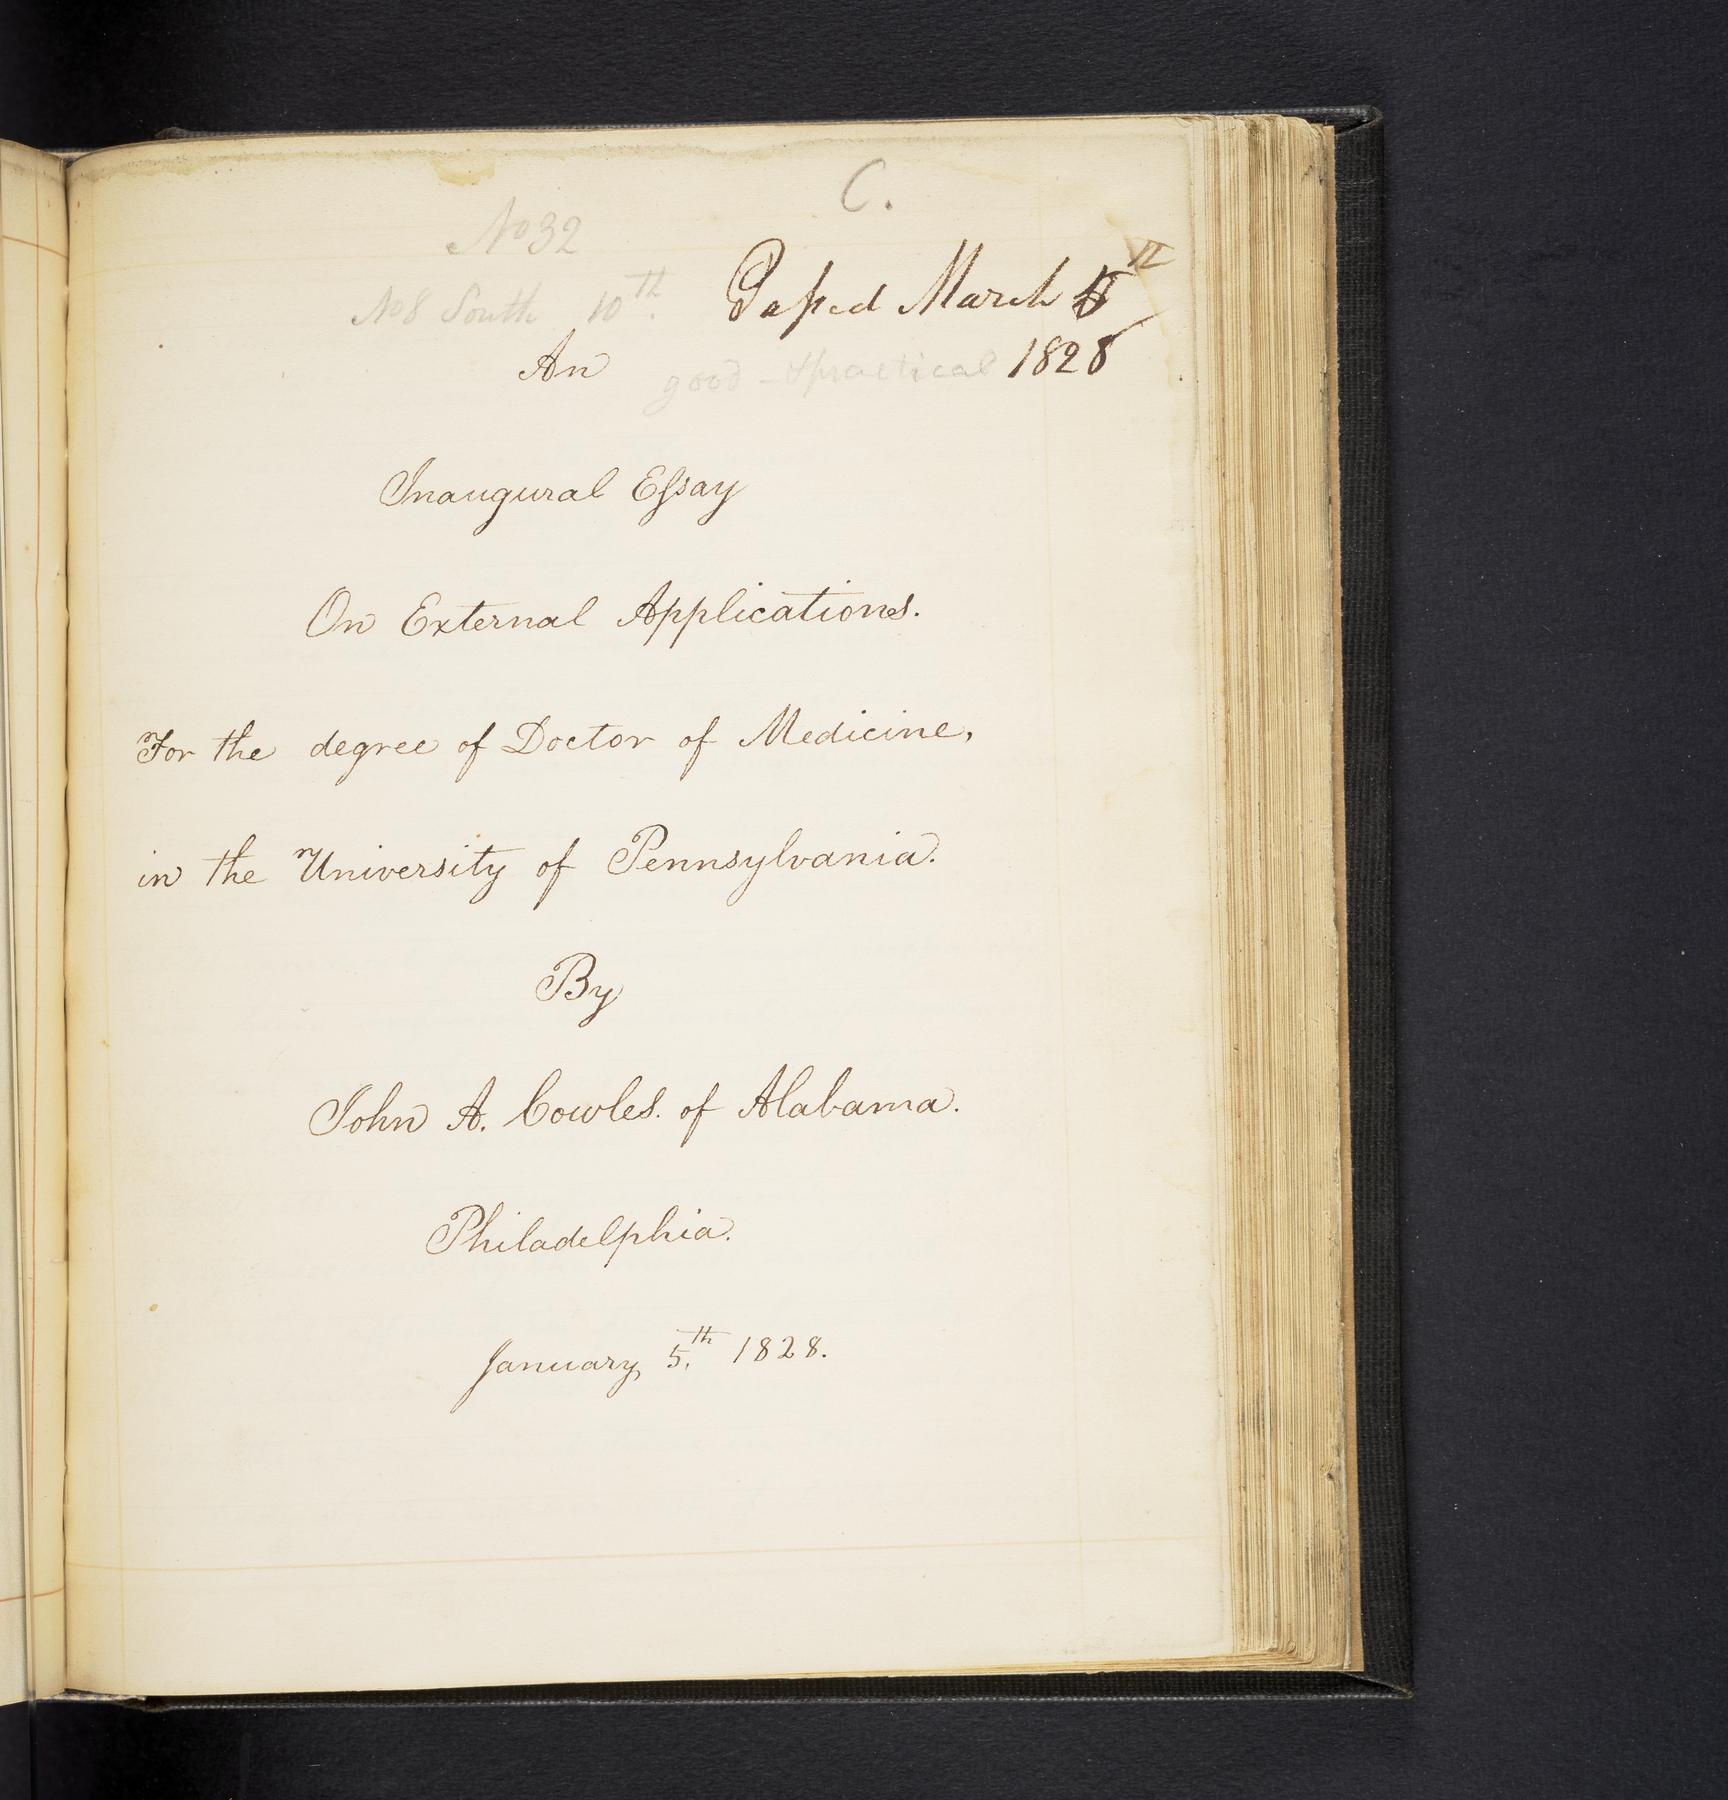 C.
No 32
No 8 South 10th.
Passed March
1828
An
good - & practical
Inaugural Essay
On External Applications.
For the degree of Doctor of Medicine,
in the University of Pennsylvania.
By
John A. Cowles. of Alabama.
Philadelphia.
January, 5.th 1828.